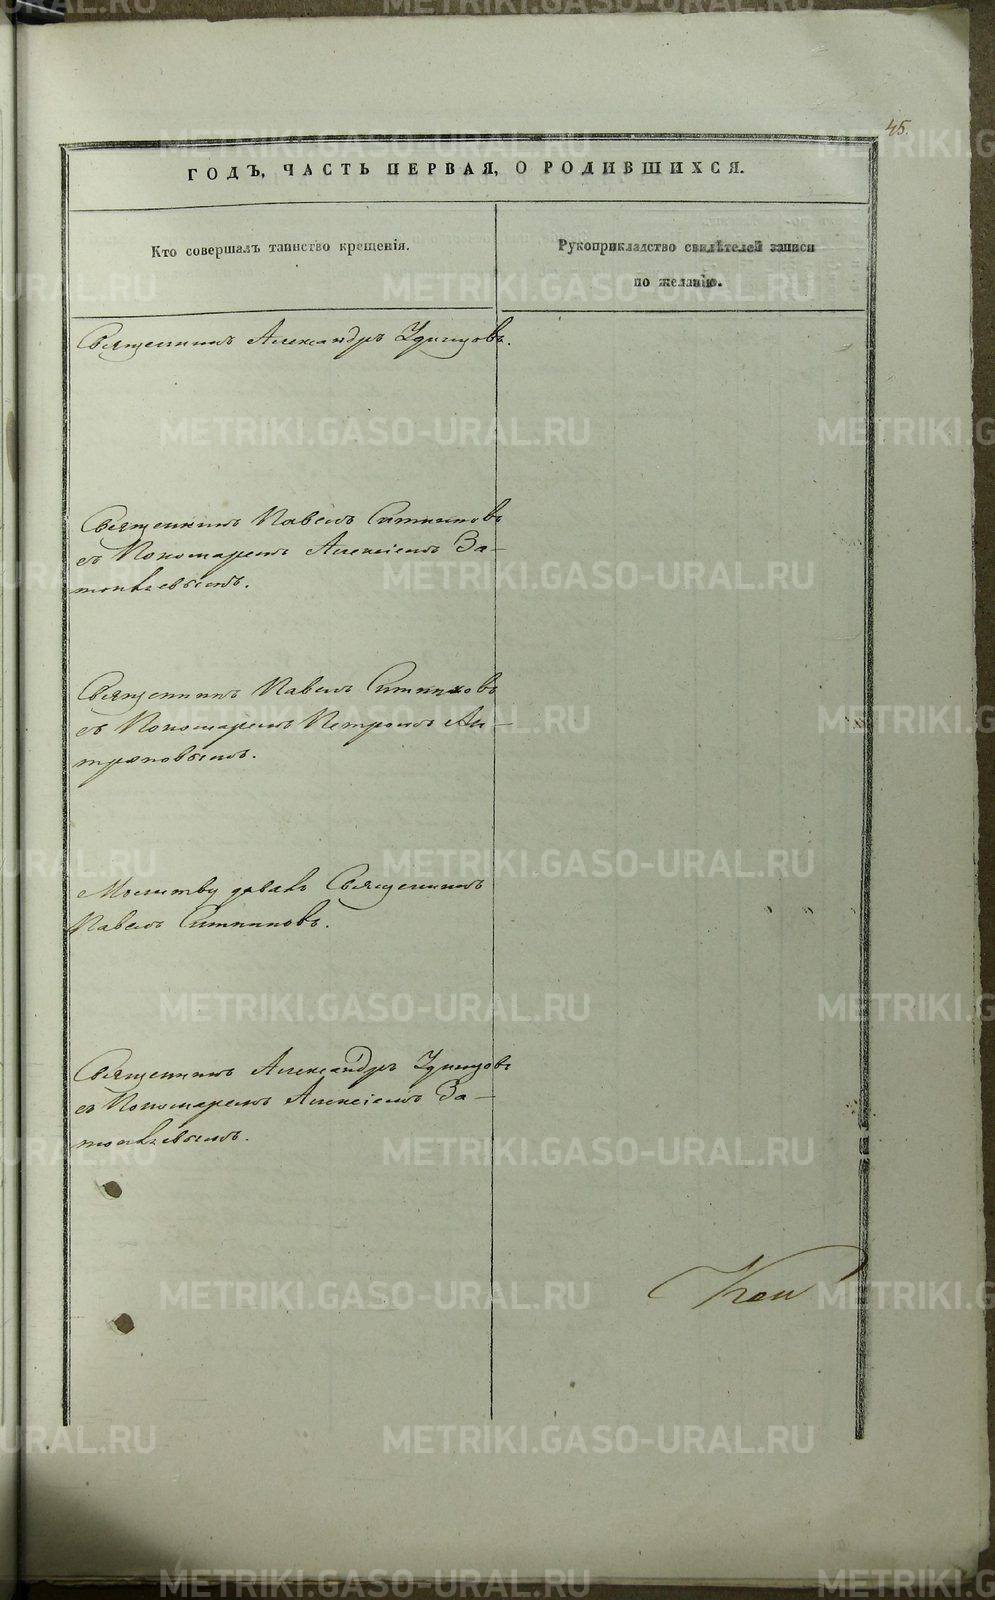 45.
ГОДЪ, ЧАСТЬ ПЕРВАЯ, О РОДИВШИХСЯ.
Кто совершалъ таинство крещенія.
Рукоприкладство свидѣтелей записи
по желанію.
Священникъ Александръ Удинцовъ.
Священникъ Павелъ Ситниковъ
съ Пономаремъ Алексіемъ За-
топляевымъ.
Священникъ Павелъ Ситниковъ
съ Пономаремъ Петромъ Ан-
троповымъ.
Молитву давалъ Священникъ
Павелъ Ситниковъ.
Священникъ Александръ Удинцовъ
съ Пономаремъ Алексіемъ За-
топляевымъ.
METRIKI.GASO-URAL.RU